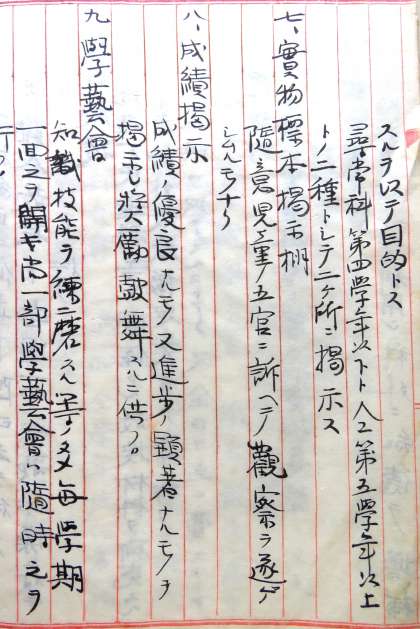 スルヲ以テ目的トス
尋常科第四學年以下ト第五學年以上
トノ二種トシテ二ヶ所ニ掲示ス
七、實物標本掲示棚
隨意児童ノ五官ニ訴ヘテ觀察ヲ遂ゲ
シムルモノナリ
八、成績掲示
成績ノ優良ナルモノ又進歩ノ顕著ナルモノヲ
掲示シ奬勵鼓舞スルニ供ス。
九、學藝會
知識技能ヲ練磨スル等ノ爲毎學期
一回之ヲ開キ尚一部學藝會ハ隨時之ヲ
行フ